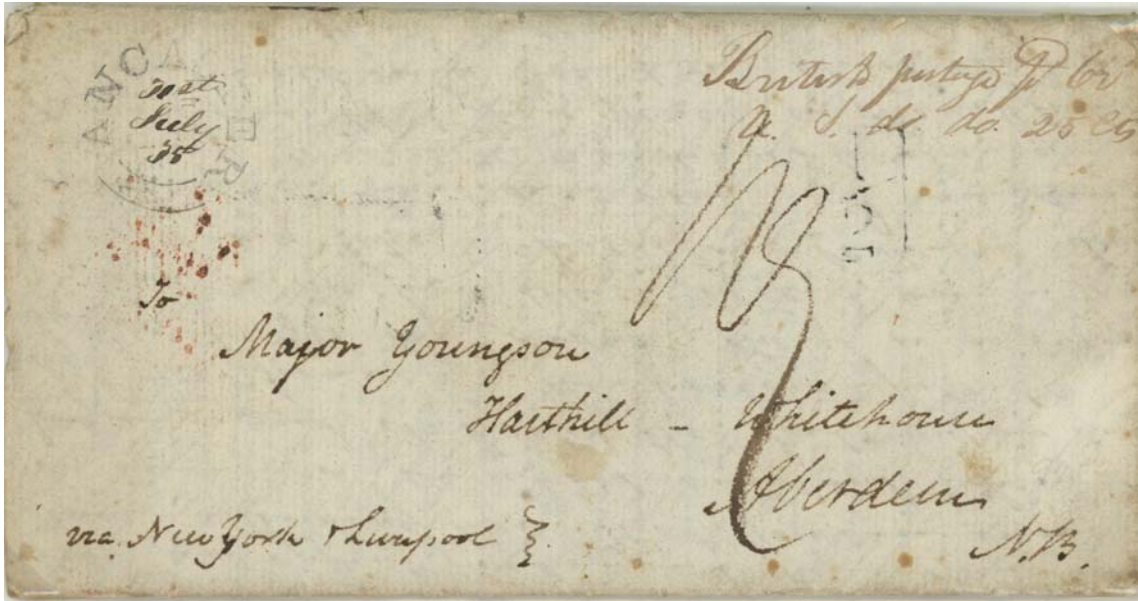 ANCASTER
July
35
British postage
U. S. do do. 25 Cts
To
Major Youngson
Harthill - Whitehouse
Aberdeen
via New York & Liverpool
N.B.